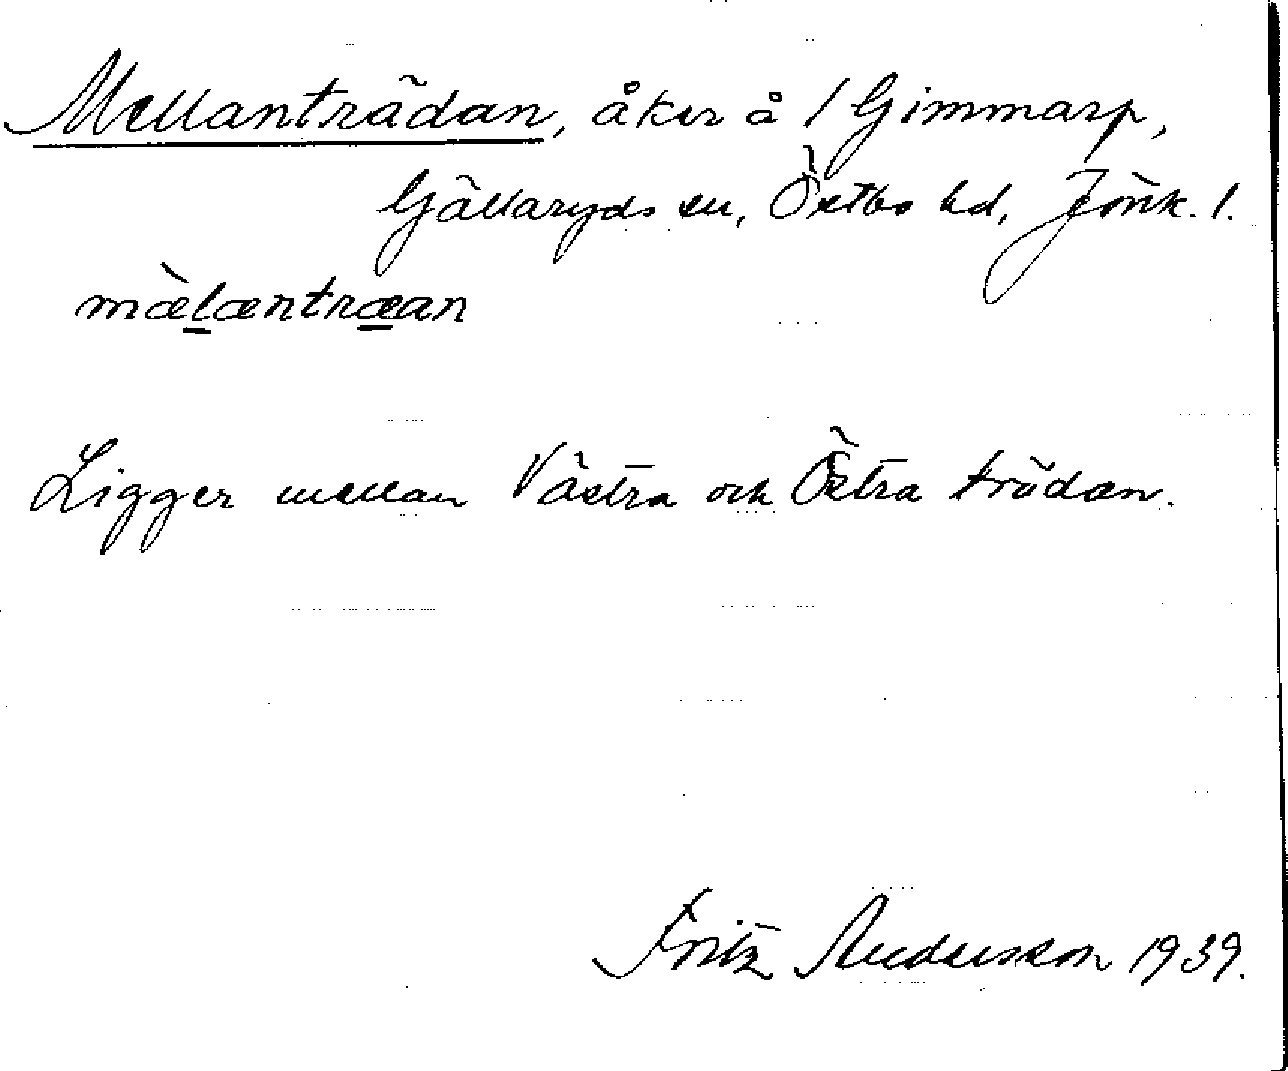 Mellanträdan, åker å 1 Gimmarp,
Gällaryds sn, Östbo hd, Jönk. l.
mælæntræan
Ligger mellan Västra och Östra trädan.
Fritz Andersson 1939.